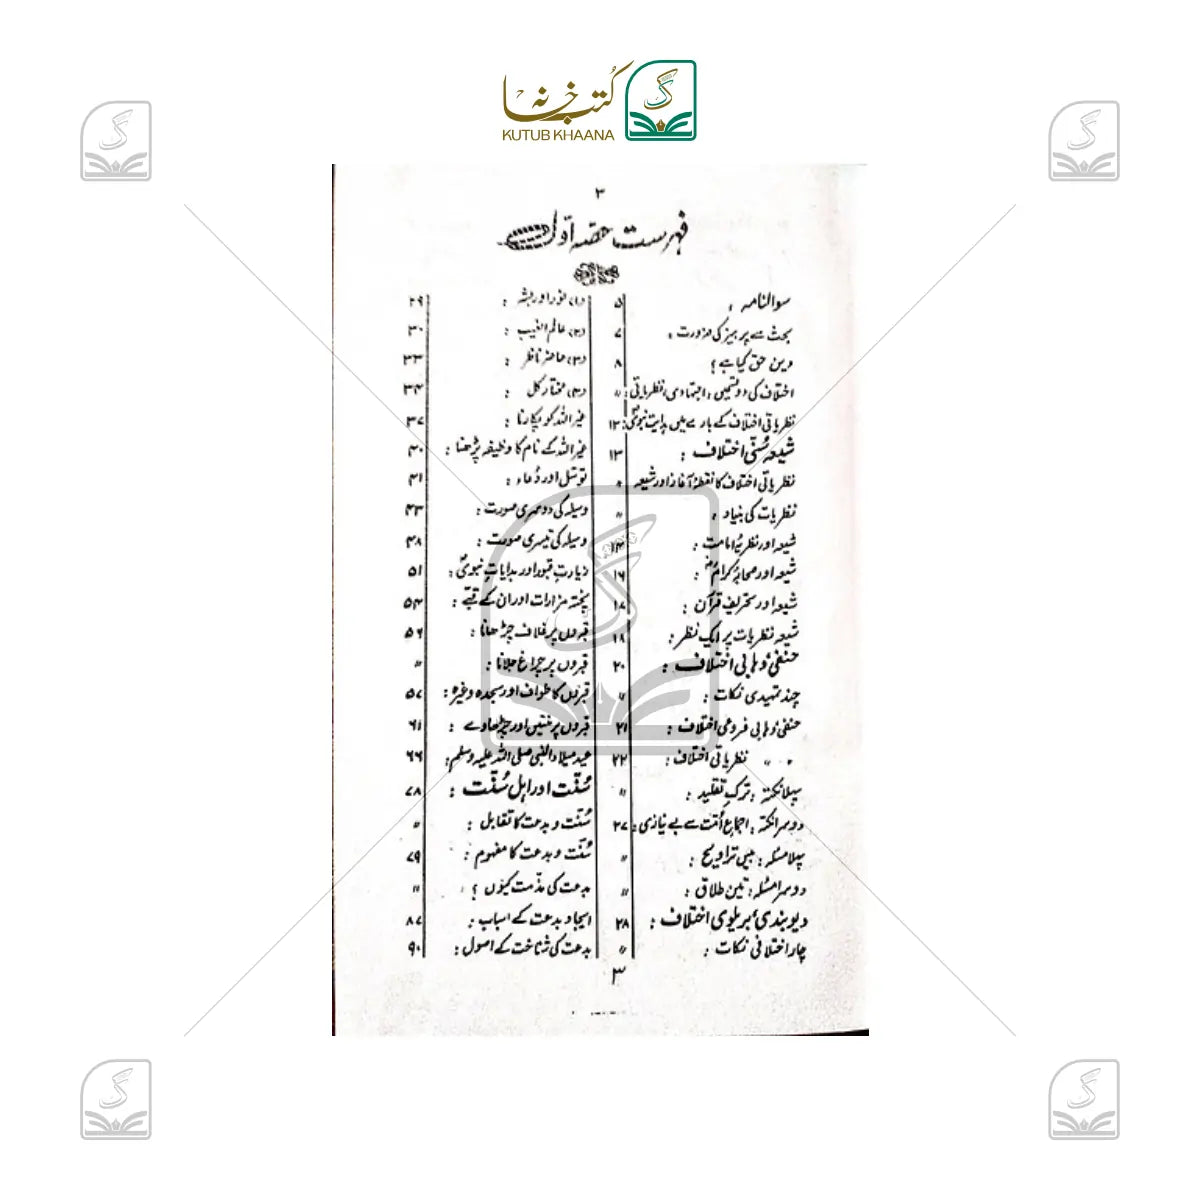 کُتب خانہ
KUTUB KHAANA
۳
فہرست حصہ اوّل
سوالنامہ : ۵
بحث سے پرہیز کی ضرورت : ۷
دین حق کیا ہے ؟ ۸
اختلاف کی دو قسمیں : اجتہادی، نظریاتی : 〃
نظریاتی اختلاف کے بارے میں ہدایت نبویؐ : ۱۲
شیعہ سُنّی اختلاف : ۱۳
نظریاتی اختلاف کا نقطۂ آغاز اور شیعہ 〃
نظریات کی بنیاد : 〃
شیعہ اور نظریۂ امامت : ۱۴
شیعہ اور صحابہ کرامؓ : ۱۶
شیعہ اور تحریف قرآن : ۱۷
شیعہ نظریات پر ایک نظر : ۱۸
حنفی وہابی اختلاف : ۲۰
چند تمہیدی نکات : 〃
حنفی وہابی فروعی اختلاف : ۲۱
〃 〃 نظریاتی اختلاف : ۲۲
پہلا نکتہ : ترک تقلید : 〃
دوسرا نکتہ : اجماع اُمّت سے بے نیازی : ۲۷
پہلا مسئلہ : بیس تراویح : 〃
دوسرا مسئلہ : تین طلاق : 〃
دیوبندی بریلوی اختلاف : ۲۸
چار اختلافی نکات : 〃
(۱) نور اور بشر : ۲۹
(۲) عالم الغیب : ۳۰
(۳) حاضر ناظر : ۳۳
(۴) مختار کل : ۳۴
غیر اللہ کو پکارنا : ۳۷
غیر اللہ کے نام کا وظیفہ پڑھنا : ۴۰
توسّل اور دُعاء : ۴۱
وسیلہ کی دوسری صورت : ۴۳
وسیلہ کی تیسری صورت : ۴۸
زیارتِ قبور اور ہدایاتِ نبویؐ : ۵۱
پختہ مزارات اور ان کے قبّے : ۵۴
قبروں پر غلاف چڑھانا : ۵۶
قبروں پر چراغ جلانا : 〃
قبروں کا طواف اور سجدہ وغیرہ : ۵۷
قبروں پر منتیں اور چڑھاوے : ۶۱
عید میلاد النبی صلی اللہ علیہ وسلم : ۶۶
سُنّت اور اہل سُنّت : ۷۸
سُنّت و بدعت کا تقابل : 〃
سُنّت و بدعت کا مفہوم : ۷۹
بدعت کی مذمت کیوں ؟ : 〃
ایجادِ بدعت کے اسباب : ۸۷
بدعت کی شناخت کے اصول : ۹۰
۳